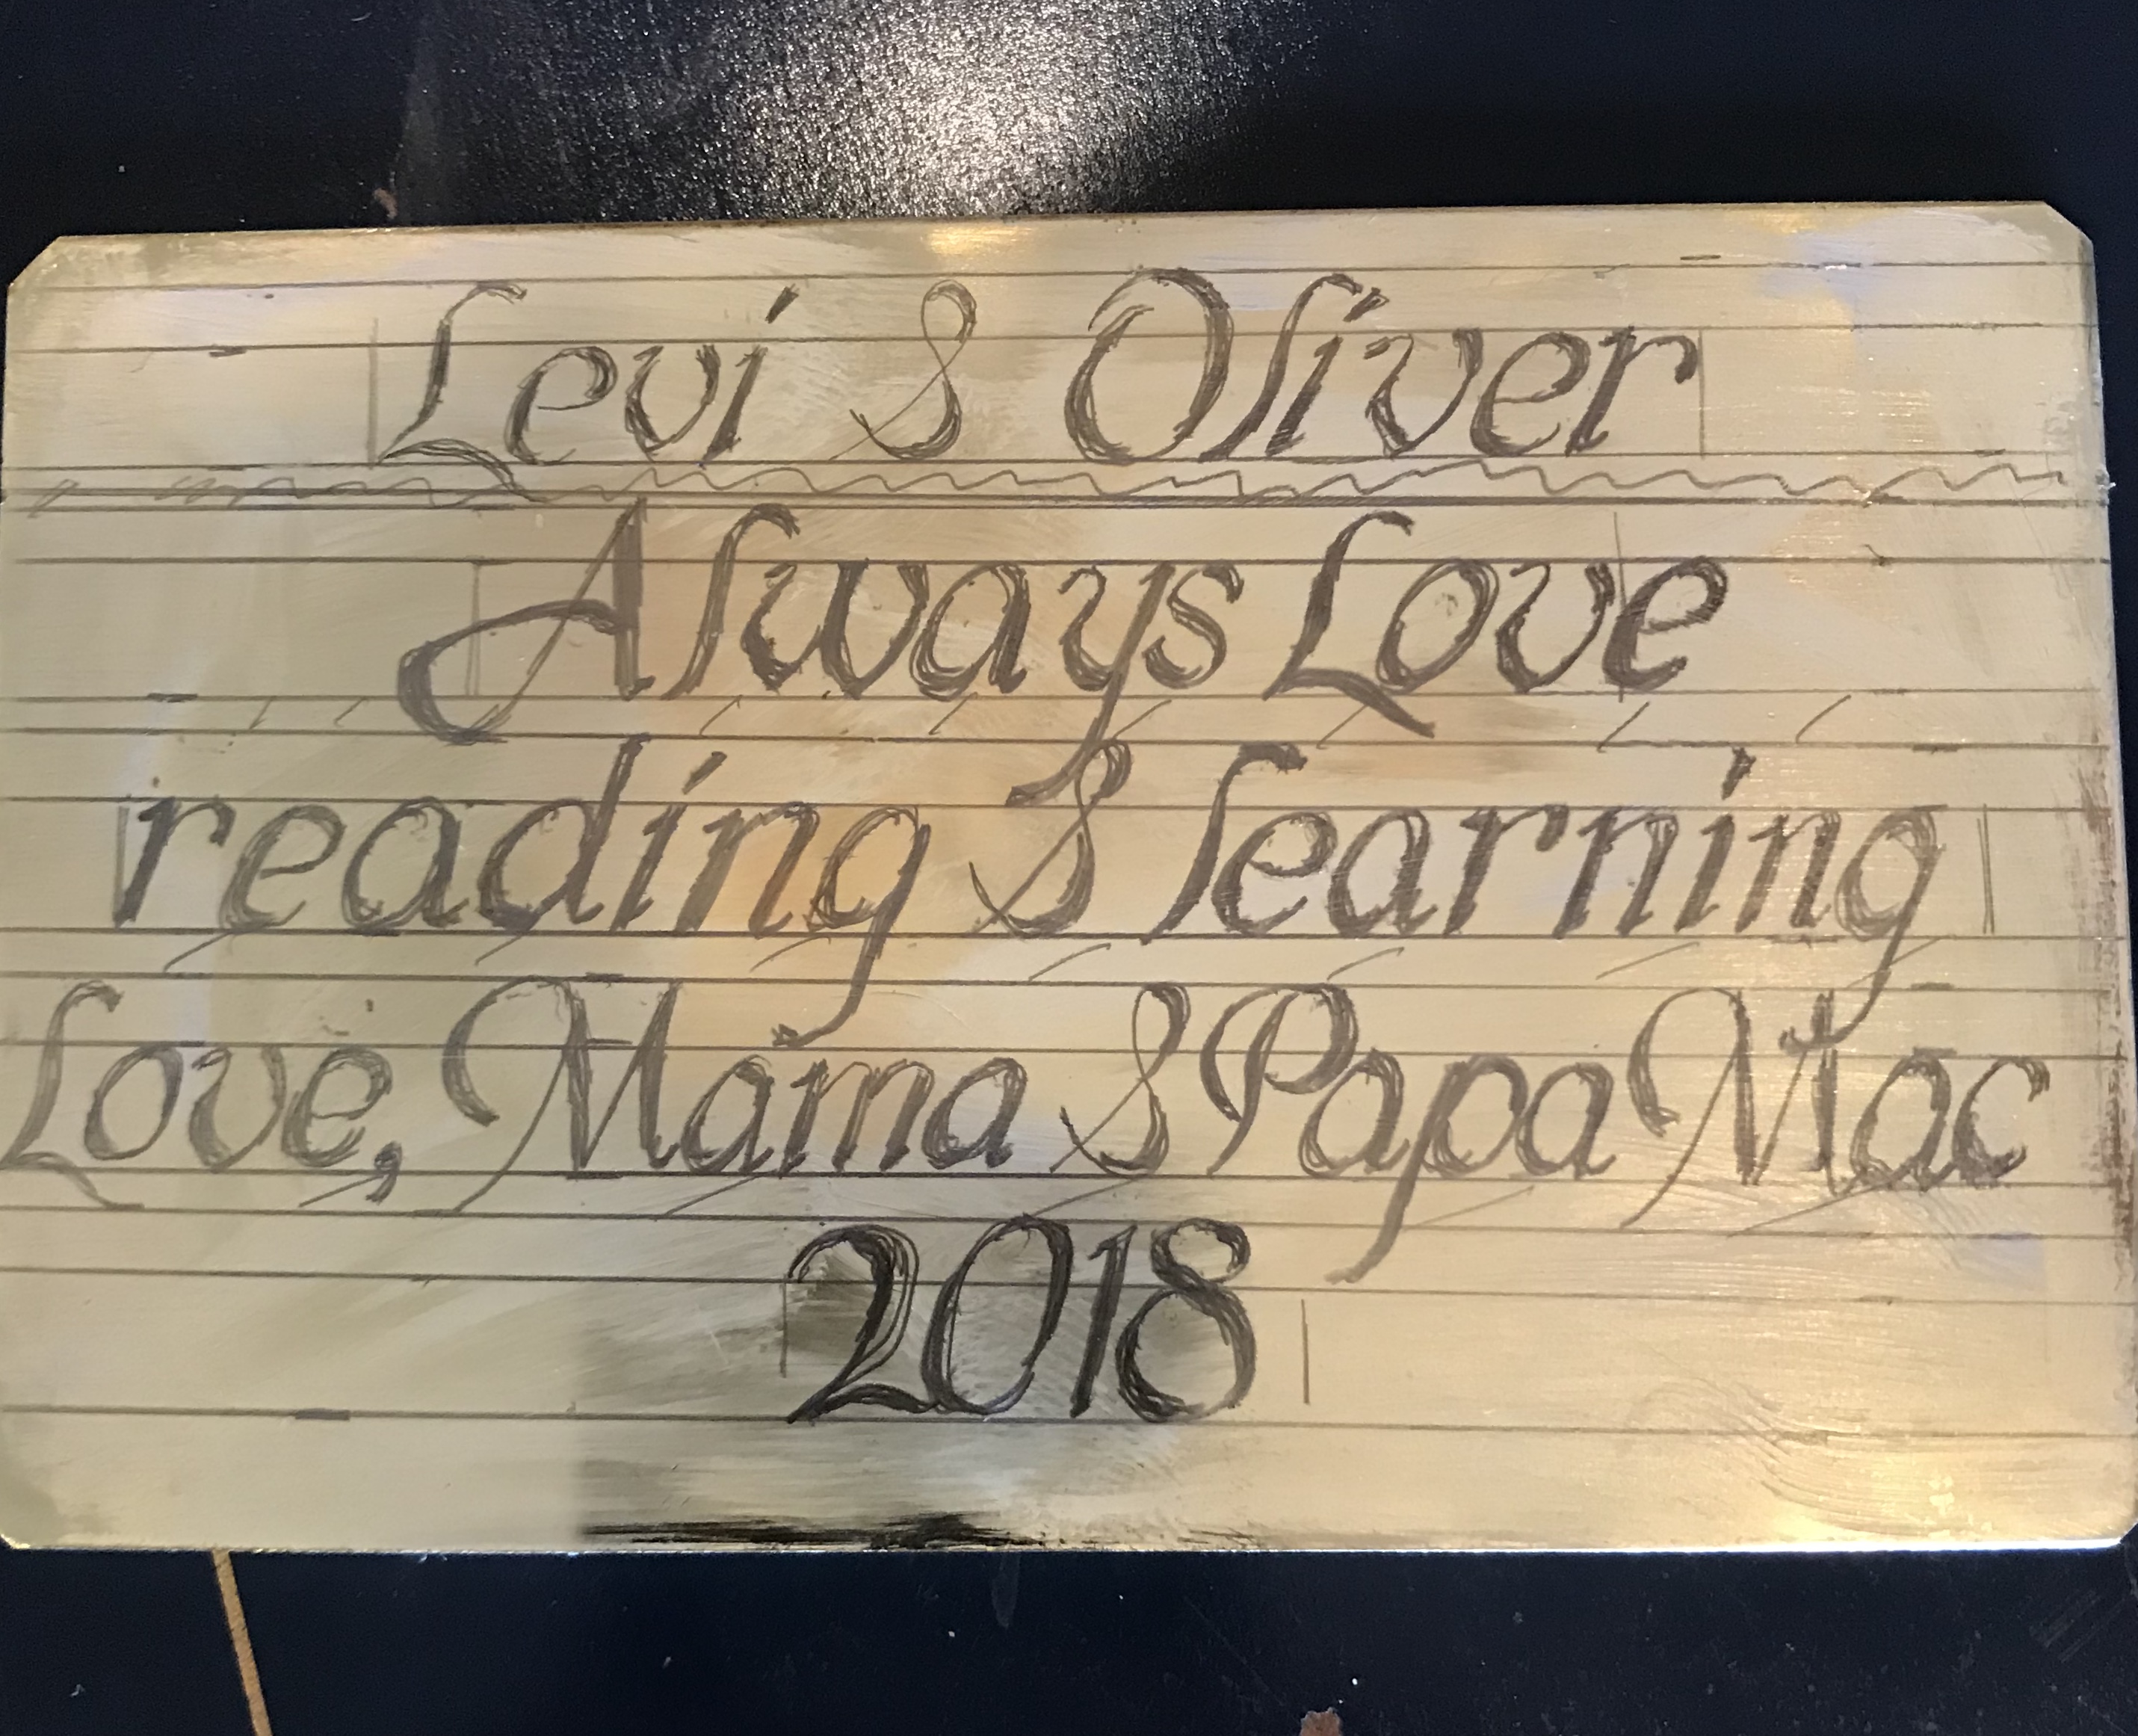 Levi & Oliver
Always Love
reading & learning
Love, Mama & Papa Mac
2018